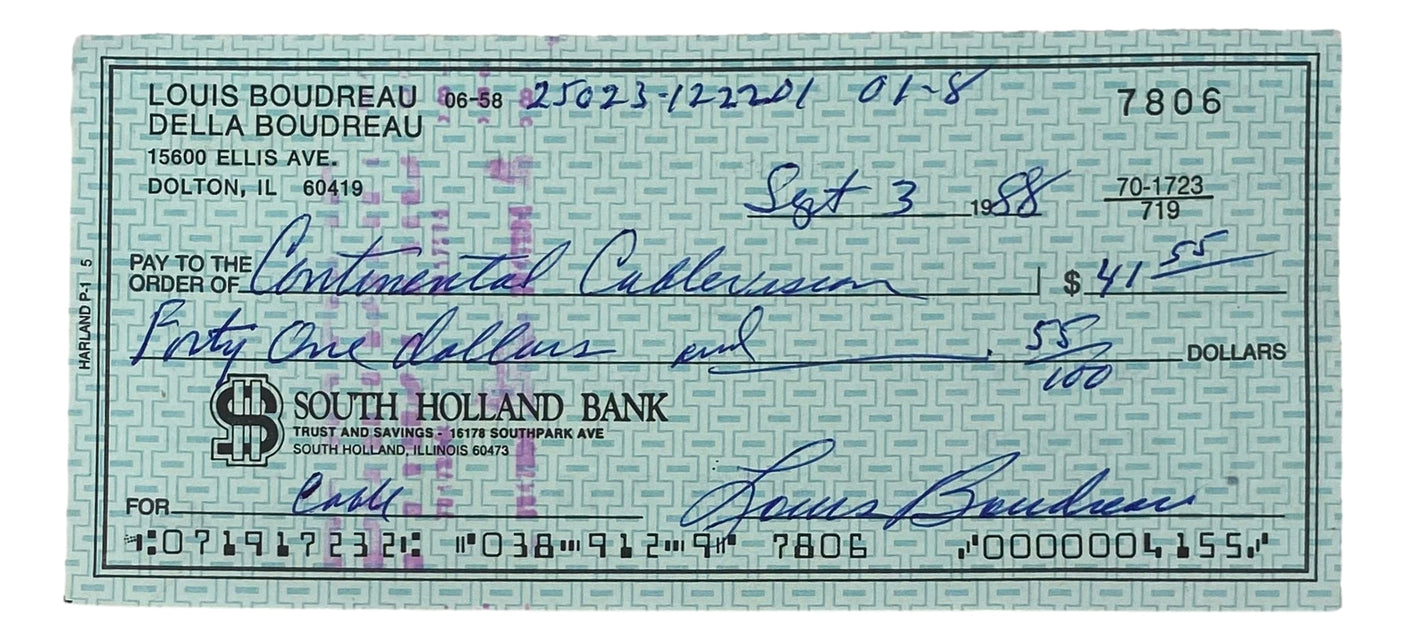 LOUIS BOUDREAU 06-58 25023-122201 01-8 7806
DELLA BOUDREAU
15600 ELLIS AVE.
DOLTON, IL 60419
Sept 3 1988 70-1723
719
PAY TO THE
ORDER OF Continental Cablevision $ 41 55
Forty One dollars and 55/100 DOLLARS
HARLAND P-1 5
SOUTH HOLLAND BANK
TRUST AND SAVINGS - 16178 SOUTHPARK AVE
SOUTH HOLLAND, ILLINOIS 60473
FOR Cable Louis Boudreau
⑆071917232⑆ ⑈038⑉912⑉9⑈ 7806 ⑇0000004155⑇